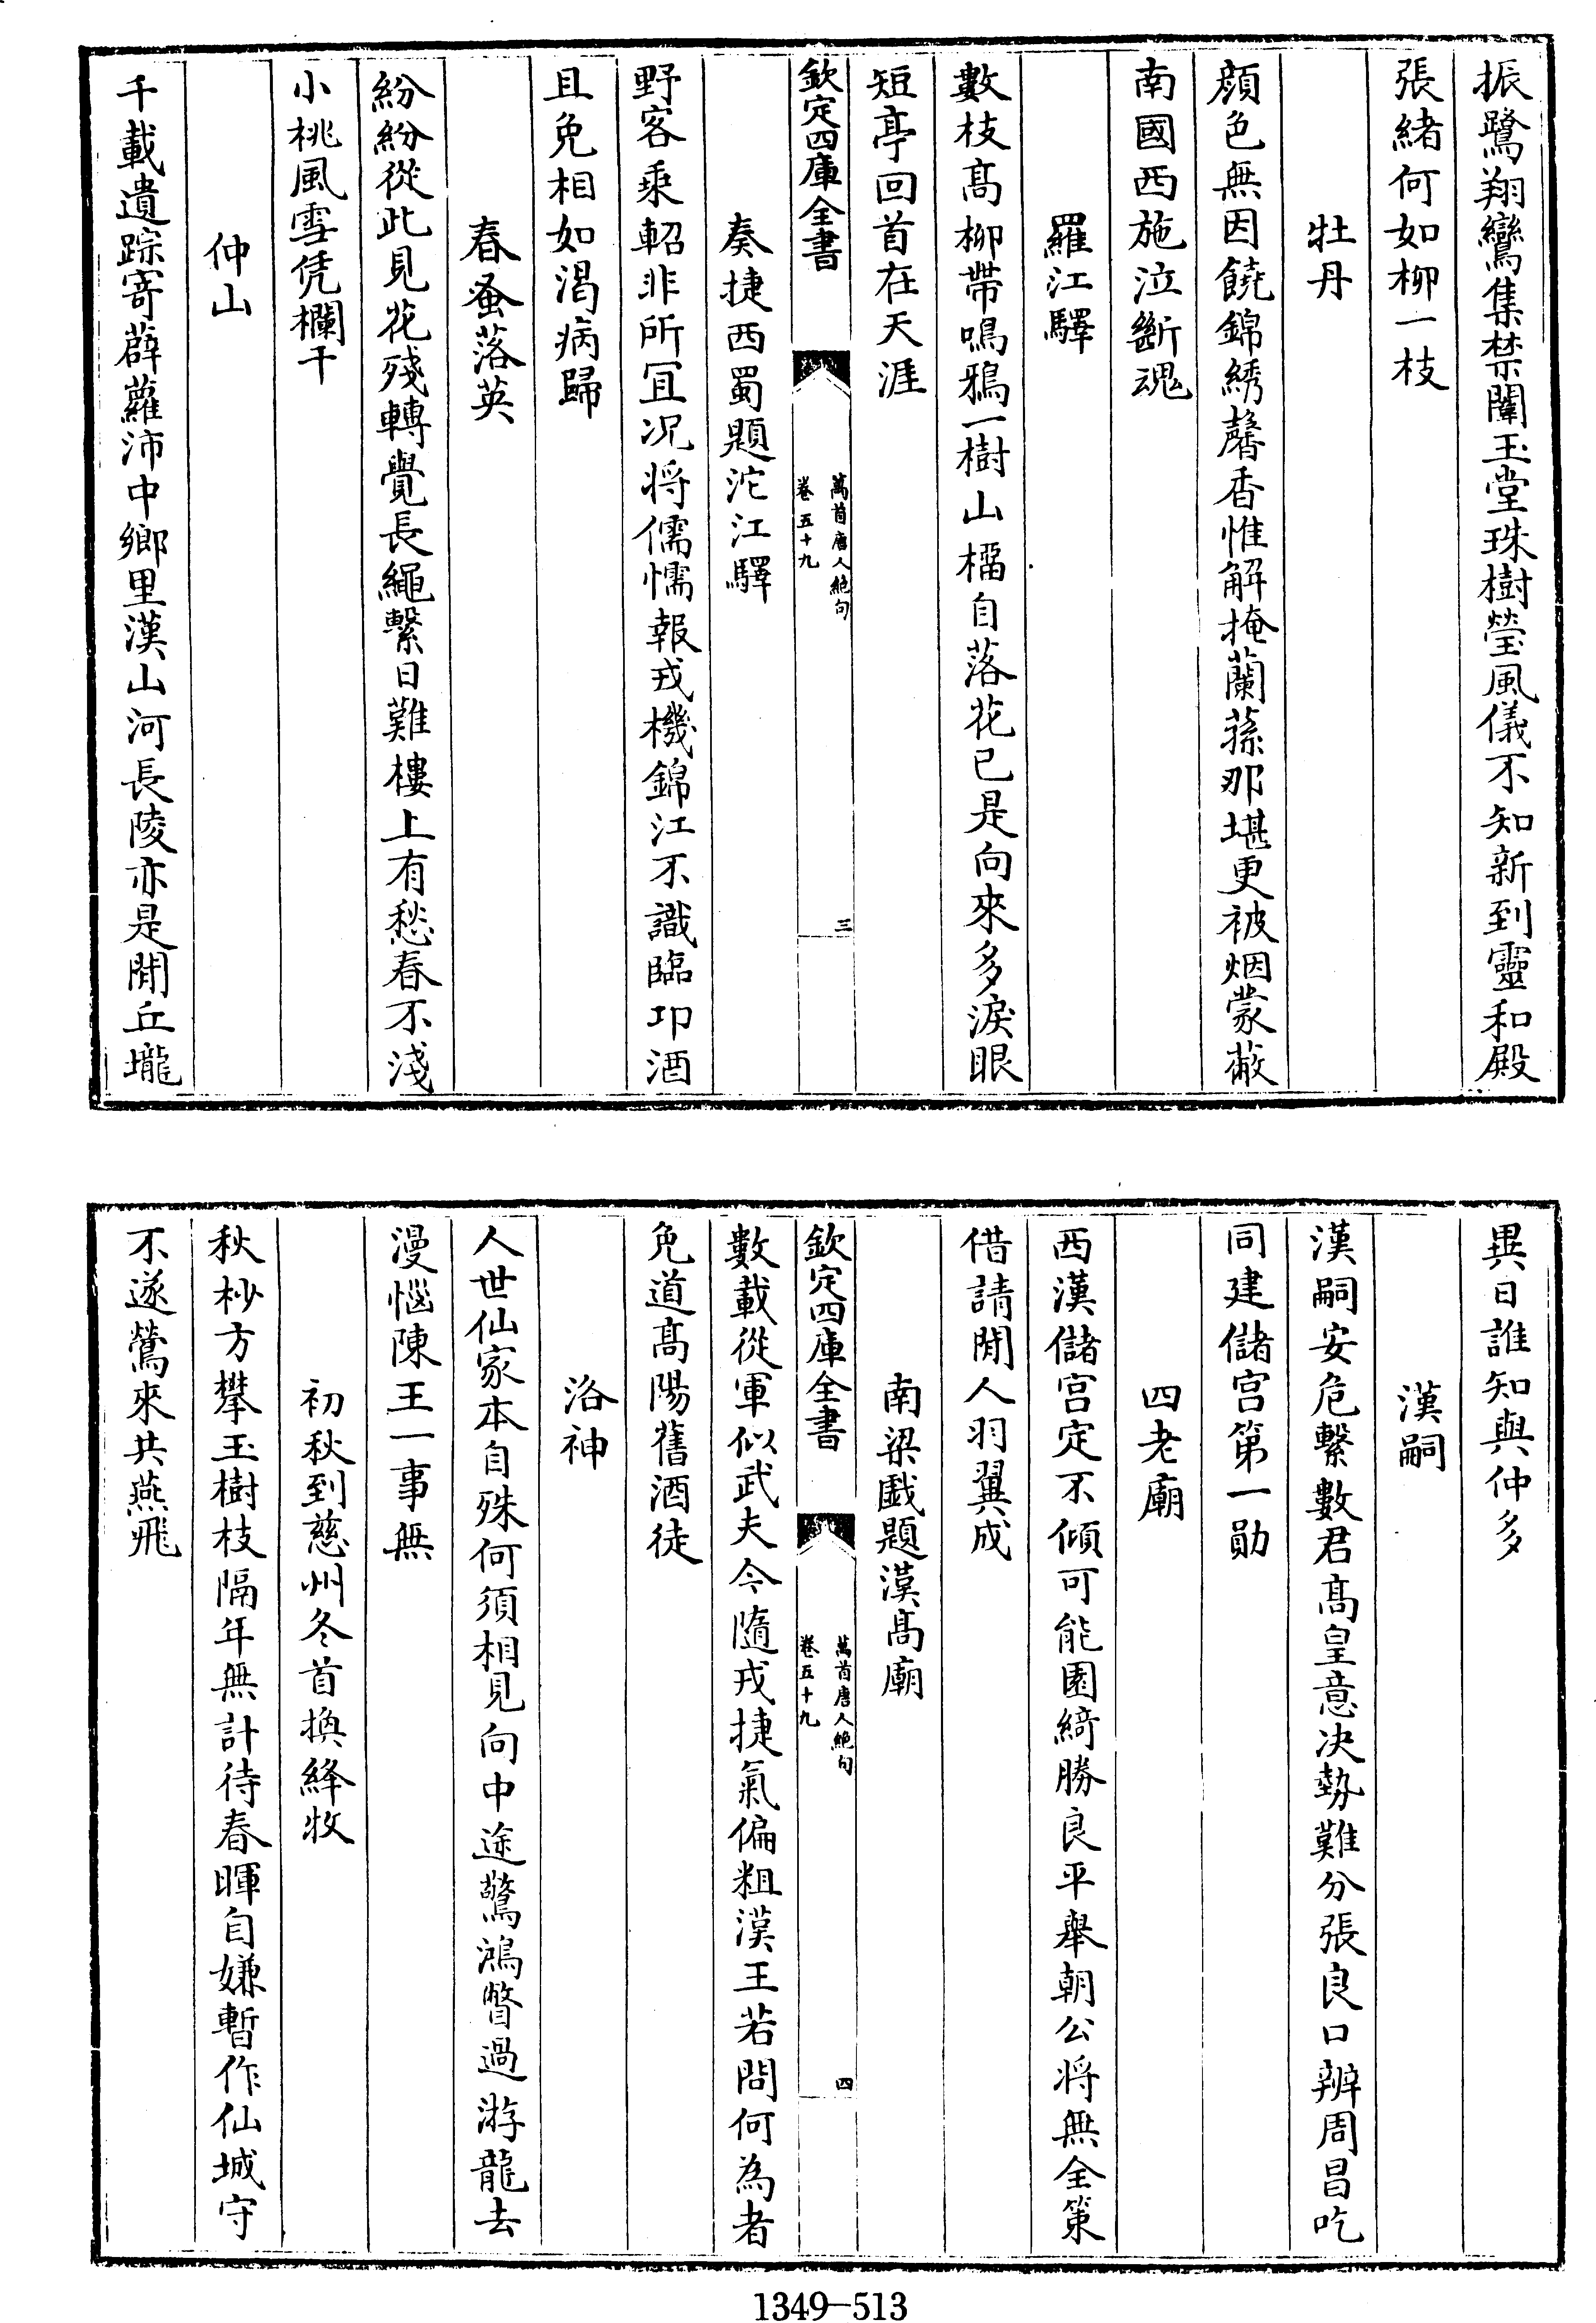 振鷺翔鸞集禁闈玉堂珠樹瑩風儀不知新到靈和殿
張緒何如柳一枝
牡丹
顔色無因饒錦綉馨香惟解掩蘭蓀那堪更被烟蒙蔽
南國西施泣斷魂
羅江驛
數枝髙柳帶鳴鴉一樹山榴自落花已是向來多淚眼
短亭回首在天涯
欽定四庫全書
萬首唐人絶句
卷五十九
三
奏捷西蜀題沱江驛
野客乘軺非所冝况將儒懦報戎機錦江不識臨邛酒
且免相如渇病歸
春蚤落英
紛紛從此見花殘轉覺長繩繫日難樓上有愁春不淺
小桃風雪凭欄干
仲山
千載遺踪寄薜蘿沛中鄉里漢山河長陵亦是閒丘壠
異日誰知與仲多
漢嗣
漢嗣安危繫數君髙皇意决勢難分張良口辨周昌吃
同建儲宫第一勛
四老廟
西漢儲宫定不傾可能園綺勝良平舉朝公將無全策
借請閒人羽翼成
南梁戲題漢髙廟
欽定四庫全書
萬首唐人絶句
卷五十九
四
數載從軍似武夫今隨戎捷氣偏粗漢王若問何為者
免道髙陽舊酒徒
洛神
人世仙家本自殊何須相見向中途驚鴻瞥過游龍去
漫惱陳王一事無
初秋到慈州冬首換絳牧
秋杪方攀玉樹枝隔年無計待春暉自嫌暫作仙城守
不逐鶯來共燕飛
1349-513